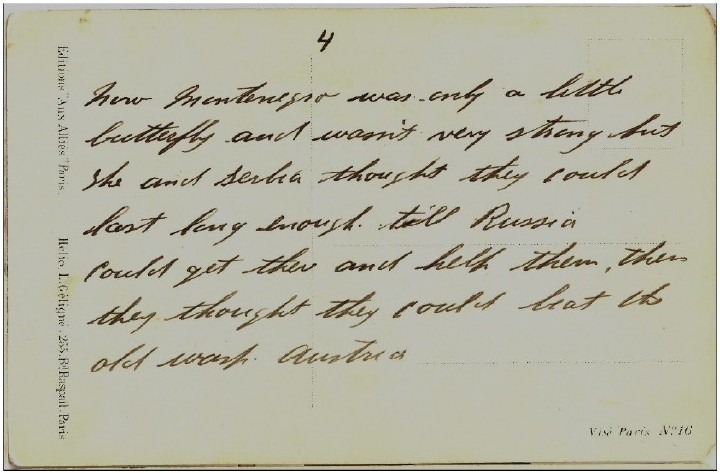 4
Now Montenegro was only a little
butterfly and wasn't very strong but
she and Serbia thought they could
last long enough till Russia
could get ther and help them, then
they thought they could beat the
old wasp Austria
Editions "Aux Alliés" Paris. Hélio. L. Géligné. 255, Bd Raspail. Paris
Visé Paris Nº 16